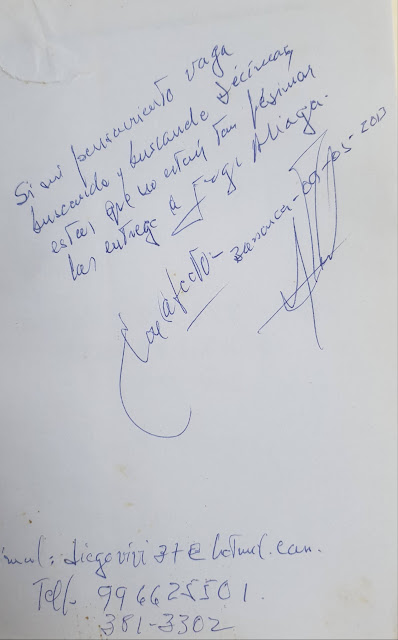 Si mi pensamiento vaga
buscando y buscando décimas,
estas que no están tan pésimas
las entrego a Jorge Aliaga.
Con afecto.- Barranca - 09-05-2013
email: diegovivi37@hotmail.com.
Telf. 996625501.
381-3302